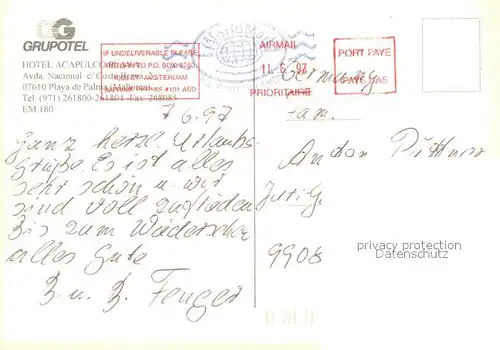 GRUPOTEL
HOTEL ACAPULCO PLAYA
Avda. Nacional c/ Costa Brava, 2
07610 Playa de Palma (Mallorca)
Tel. (971) 261800-261804 Fax 268085
EM 180
IF UNDELIVERABLE PLEASE
RETURN TO P.O. BOX 9750
AMSTERDAM
AIRMAIL
11. 6. 97
PRIORITAIRE
PORT PAYE
PAYS BAS
7 6.97
Ganz herzl. Urlaubs-
grüße. Es ist alles
sehr schön u. wir
sind voll zufrieden
Bis zum Wiedersehen
alles Gute
B. u. B. Fenger
Germany
Fam.
Anton
9908
privacy protection
Datenschutz